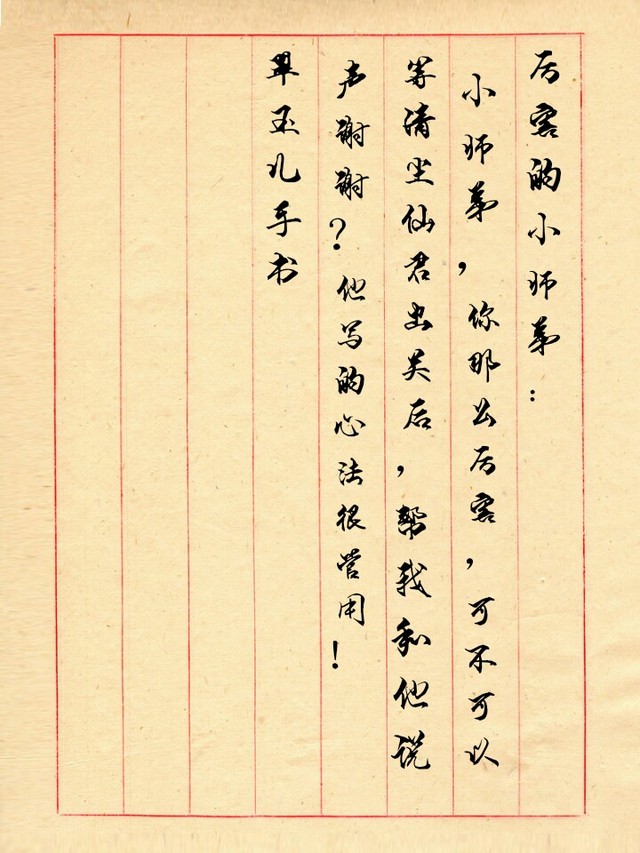 厉害的小师弟：
小师弟，你那么厉害，可不可以
等清尘仙君出关后，帮我和他说
声谢谢？他写的心法很管用！
翠玉儿手书